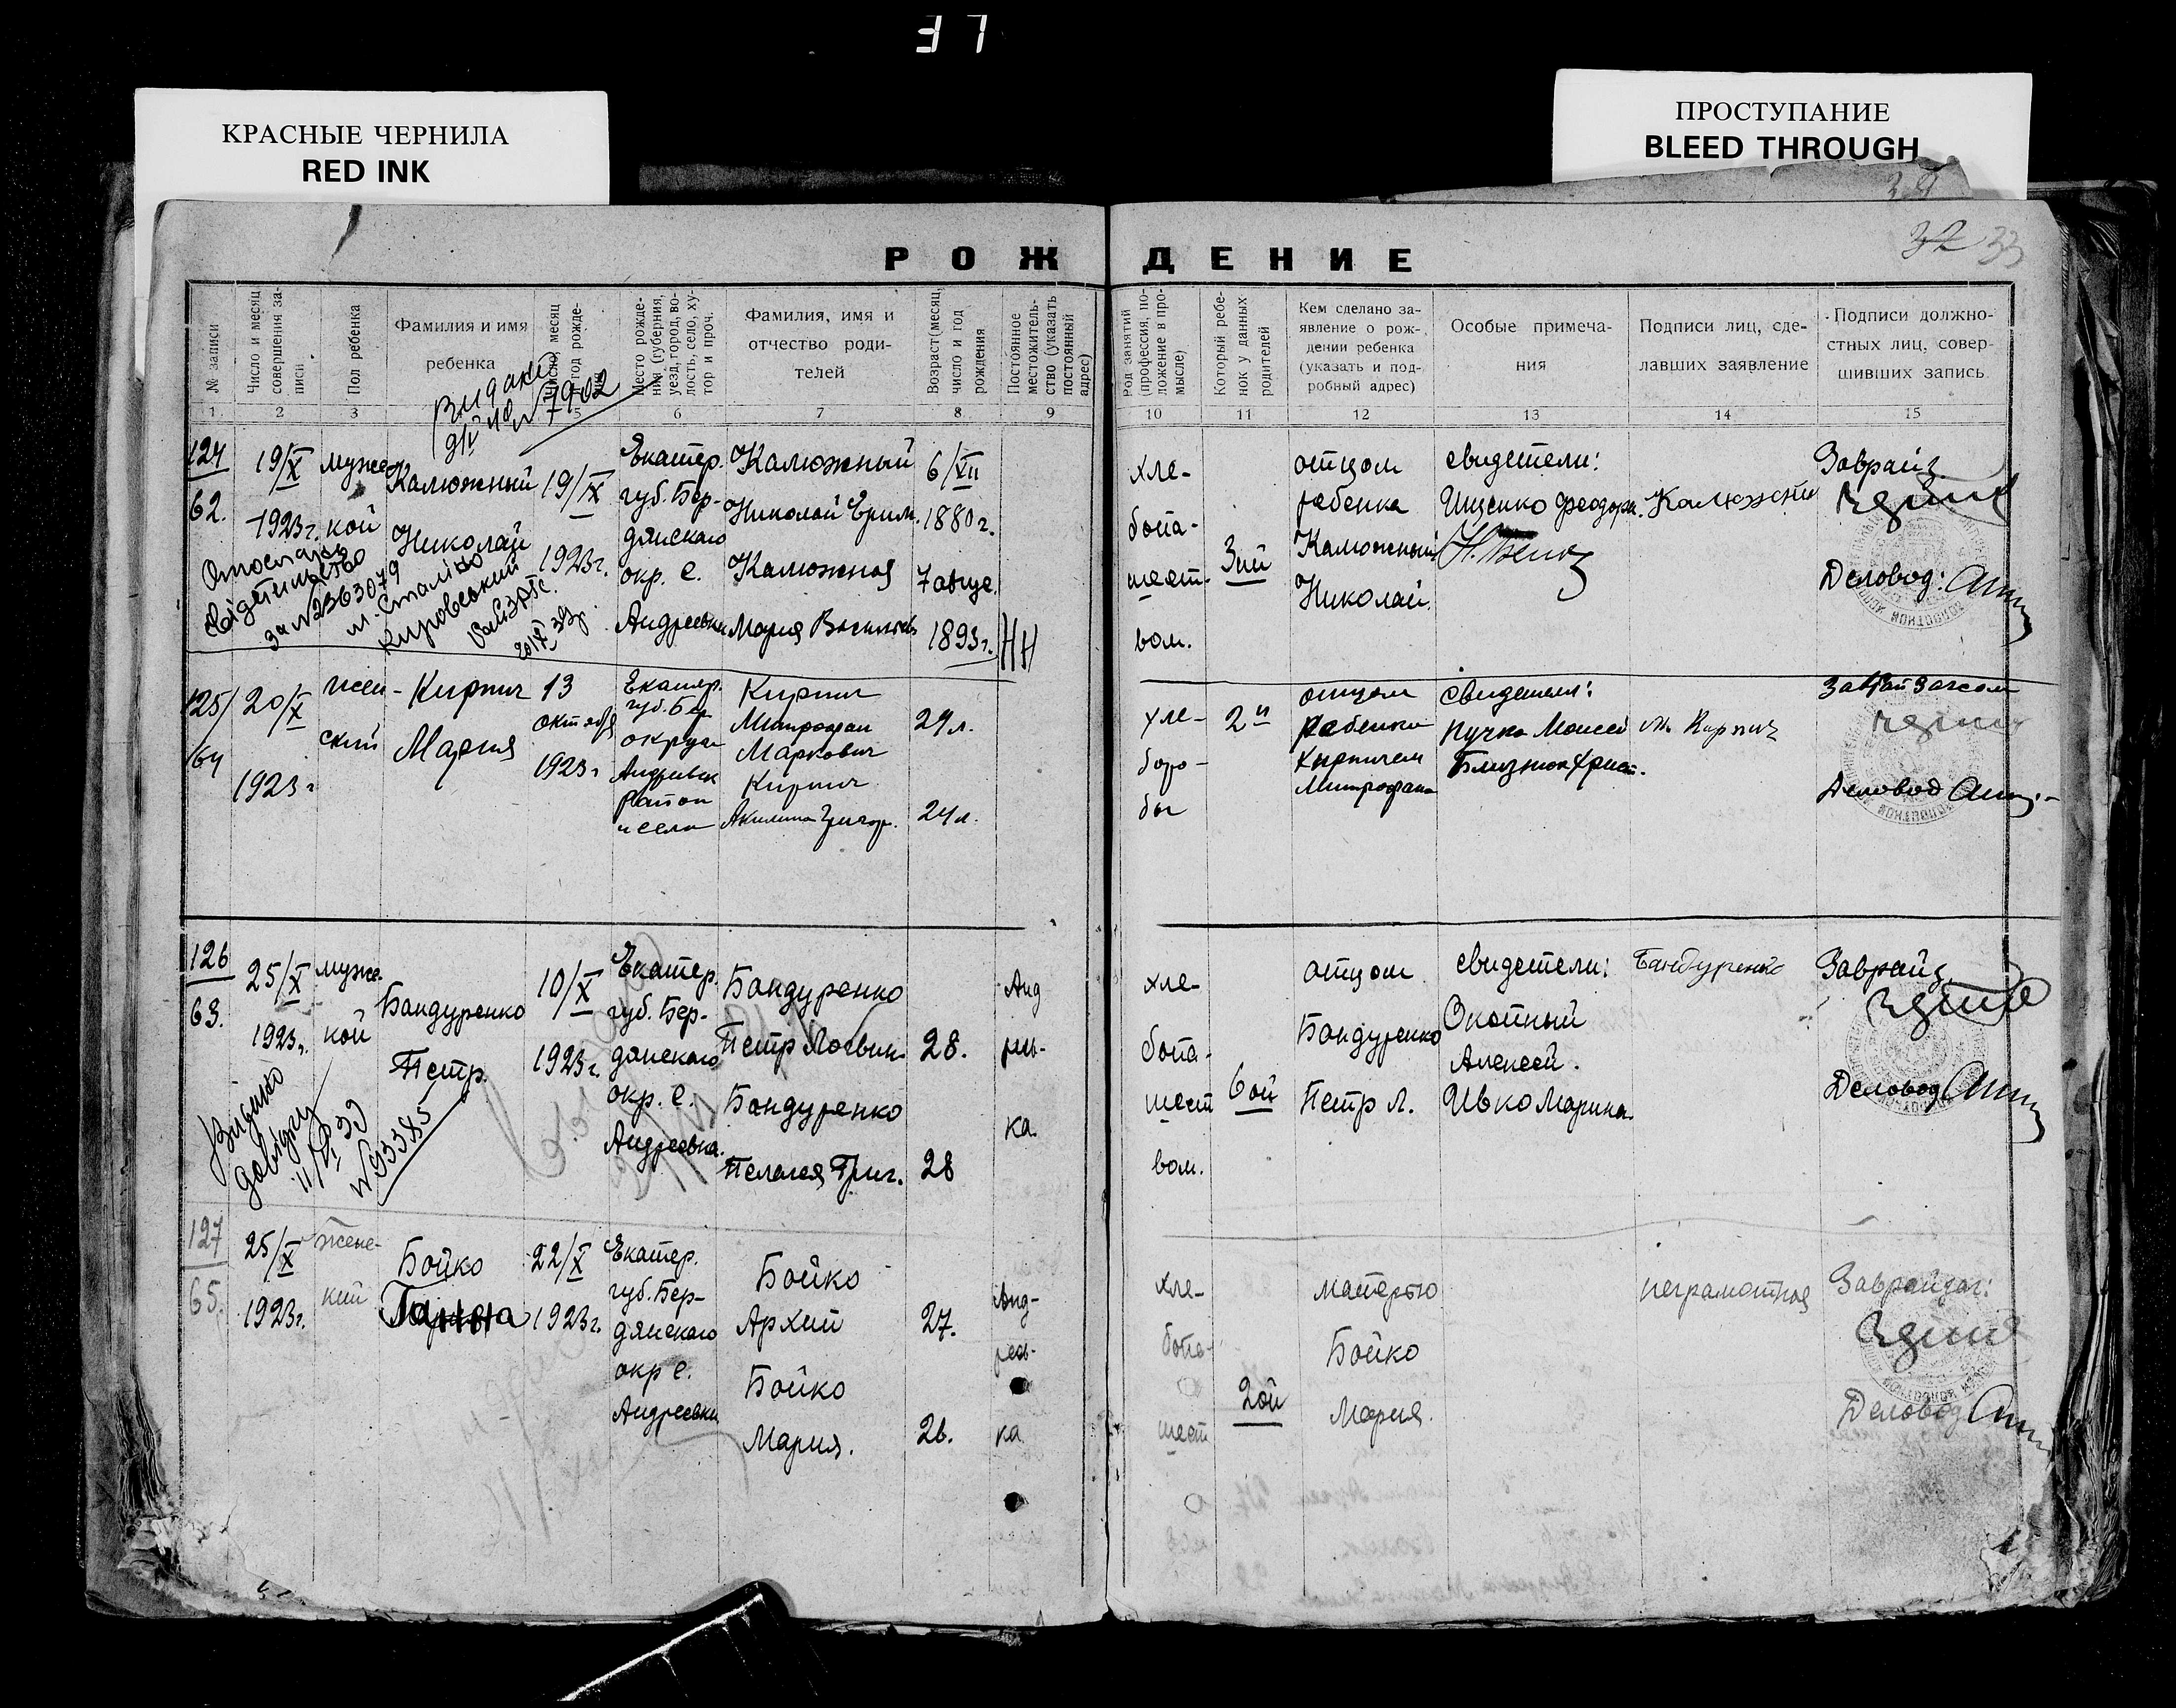 37
КРАСНЫЕ ЧЕРНИЛА
RED INK
ПРОСТУПАНИЕ
BLEED THROUGH
32 33
РОЖДЕНИЕ
№ записи
Число и месяц совершения за-
писи
Пол ребенка
Фамилия и имя
ребенка
Место рожде-
ния (губерния,
уезд, город, во-
лость, село, ху-
тор и проч.
Фамилия, имя и
отчество роди-
телей
Возраст (месяц,
число и год
рождения
Постоянное
местожитель-
ство (указать
постоянный
адрес)
Род занятий
(профессия, по-
ложение в про-
мысле)
Который ребе-
нок у данных
родителей
Кем сделано за-
явление о рож-
дении ребенка
(указать и под-
робный адрес)
Особые примеча-
ния
Подписи лиц, сде-
лавших заявление
Подписи должно-
стных лиц, совер-
шивших запись
1 2 3 5 6 7 8 9 10 11 12 13 14 15
№7902
124
62.
19/X
1923г.
мужс-
кой
Калюжный
Николай
19/IX
1923г.
Екатер.
губ. Бер-
дянскаго
окр. с.
Андреевки
Калюжный
Николай Ерим.
Калюжная
Мария Васильев
6/XII
1880г.
7 авгус.
1893г.
НН
хле-
бопа-
шест-
вом.
3ий
отцом
ребенка
Калюжный
Николай.
свидетели:
Ищенко Феодор.
Калюжный
Завраиз
Деловод:
свідетельство
за №2363079
м. Сталіно
Кировський
125
64
20/X
1923г
жен-
ский
Кирпич
Мария
13
октября
1923г
Екатер.
губ. Бер
округ
Андреевск
район
и село
Кирпич
Митрофан
Маркович
Кирпич
Акилина Григор.
24л.
хле-
боро-
бы
2й
отцом
ребенка
Кирпичем
Митрофан
свидетели:
Пучка Моисей
Близнюк Христ.
М. Кирпич
Деловод
126
63.
25/X
1923г.
мужс-
кой
Бандуренко
Петр.
10/X
1923г.
Екатер.
губ. Бер-
дянскаго
окр. с.
Андреевка.
Бандуренко
Петр Логвин.
Бандуренко
Пелагея Григ.
28.
28
Анд
рев-
ка.
хле-
бопа-
шест
вом.
6ой
отцом
Бандуренко
Петр Л.
свидетели:
Окопный
Алексей.
Ивко Марина.
Бандуренко
Завраиз
Деловод
Видано
довідку
№93385
127
65.
25/X
1923г.
женс-
кий
Бойко
Ганна
22/X
1923г.
Екатер.
губ. Бер-
дянскаго
окр с.
Андреевки
Бойко
Архип
Бойко
Мария.
27.
26.
Анд-
рев-
ка
хле-
бопа-
шест
2ой
матерью
Бойко
Мария.
неграмотная
Завраизаг:
Деловод